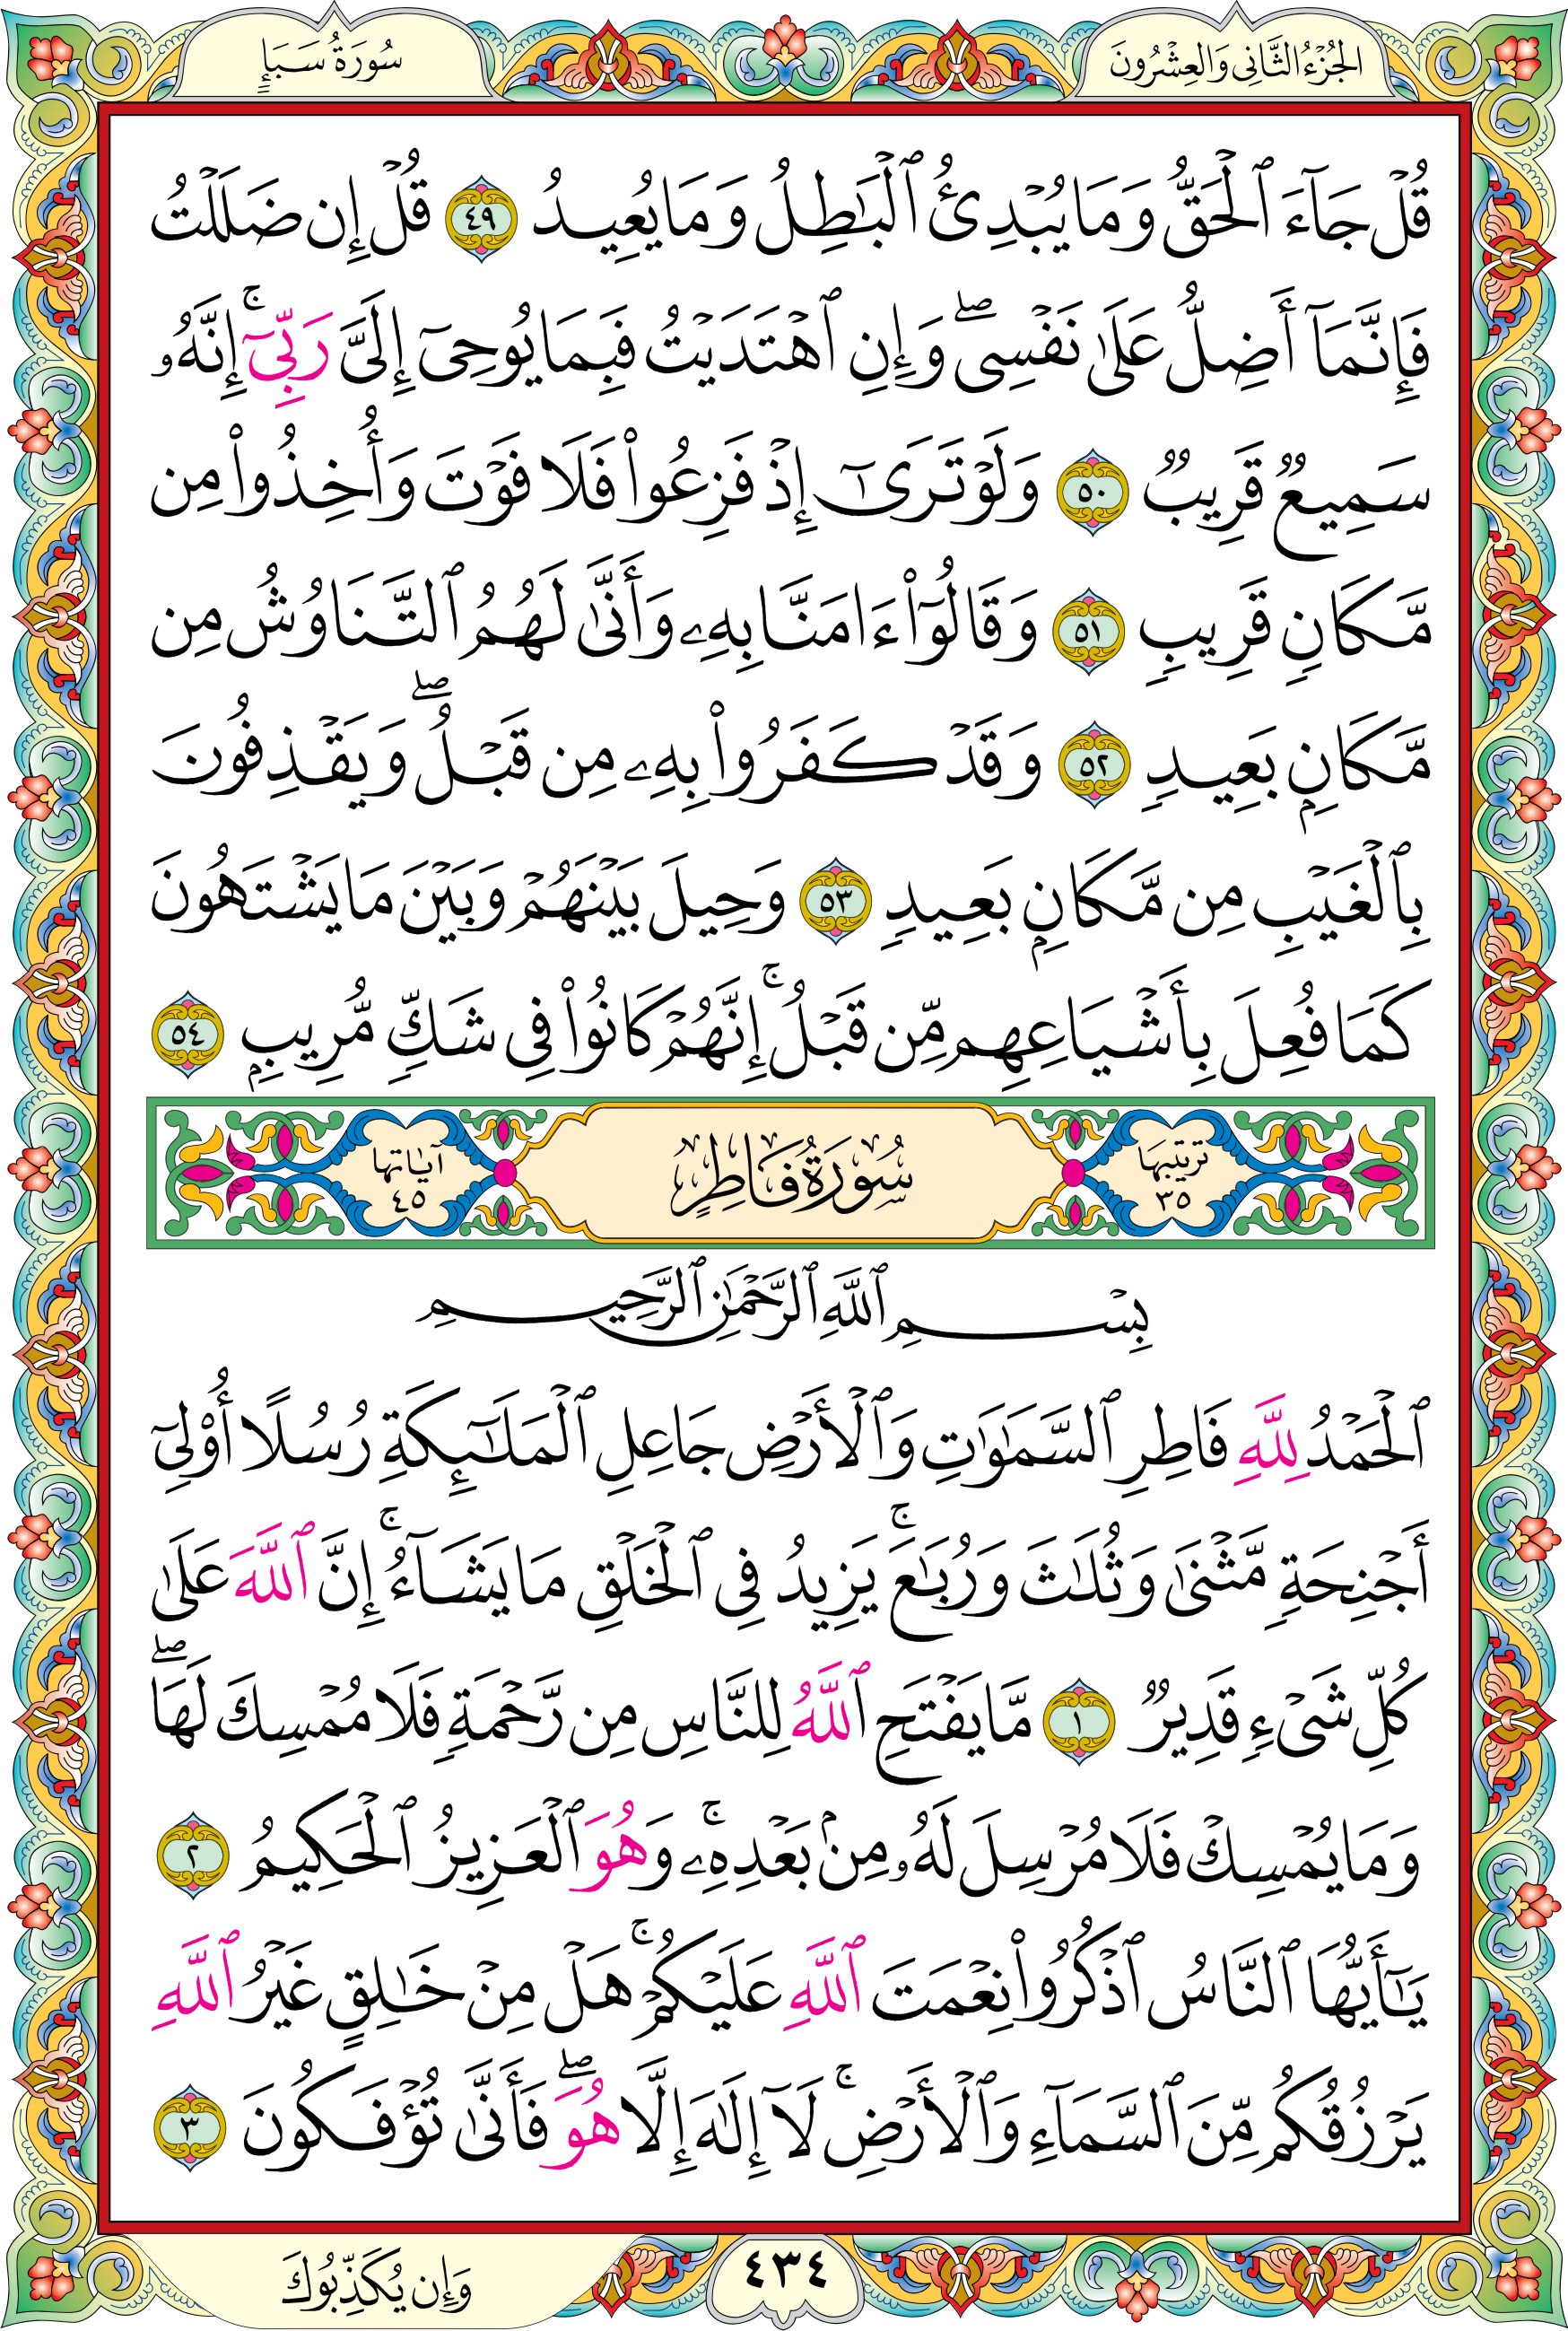 الجُزْءُ الثَّانِي وَالعِشْرُونَ
سُورَةُ سَبَإٍ
قُلْ جَآءَ ٱلْحَقُّ وَمَا يُبْدِئُ ٱلْبَٰطِلُ وَمَا يُعِيدُ ٤٩ قُلْ إِن ضَلَلْتُ
فَإِنَّمَآ أَضِلُّ عَلَىٰ نَفْسِى ۖ وَإِنِ ٱهْتَدَيْتُ فَبِمَا يُوحِىٓ إِلَىَّ رَبِّىٓ ۚ إِنَّهُۥ
سَمِيعٌ قَرِيبٌ ٥٠ وَلَوْ تَرَىٰٓ إِذْ فَزِعُوا۟ فَلَا فَوْتَ وَأُخِذُوا۟ مِن
مَّكَانٍ قَرِيبٍ ٥١ وَقَالُوٓا۟ ءَامَنَّا بِهِۦ وَأَنَّىٰ لَهُمُ ٱلتَّنَاوُشُ مِن
مَّكَانٍۭ بَعِيدٍ ٥٢ وَقَدْ كَفَرُوا۟ بِهِۦ مِن قَبْلُ ۖ وَيَقْذِفُونَ
بِٱلْغَيْبِ مِن مَّكَانٍۭ بَعِيدٍ ٥٣ وَحِيلَ بَيْنَهُمْ وَبَيْنَ مَا يَشْتَهُونَ
كَمَا فُعِلَ بِأَشْيَاعِهِم مِّن قَبْلُ ۚ إِنَّهُمْ كَانُوا۟ فِى شَكٍّ مُّرِيبٍۭ ٥٤
ترتيبها ٣٥ سُورَةُ فَاطِرٍ آياتها ٤٥
بِسْمِ ٱللَّهِ ٱلرَّحْمَٰنِ ٱلرَّحِيمِ
ٱلْحَمْدُ لِلَّهِ فَاطِرِ ٱلسَّمَٰوَٰتِ وَٱلْأَرْضِ جَاعِلِ ٱلْمَلَٰٓئِكَةِ رُسُلًا أُو۟لِىٓ
أَجْنِحَةٍ مَّثْنَىٰ وَثُلَٰثَ وَرُبَٰعَ ۚ يَزِيدُ فِى ٱلْخَلْقِ مَا يَشَآءُ ۚ إِنَّ ٱللَّهَ عَلَىٰ
كُلِّ شَىْءٍ قَدِيرٌ ١ مَّا يَفْتَحِ ٱللَّهُ لِلنَّاسِ مِن رَّحْمَةٍ فَلَا مُمْسِكَ لَهَا ۖ
وَمَا يُمْسِكْ فَلَا مُرْسِلَ لَهُۥ مِنۢ بَعْدِهِۦ ۚ وَهُوَ ٱلْعَزِيزُ ٱلْحَكِيمُ ٢
يَٰٓأَيُّهَا ٱلنَّاسُ ٱذْكُرُوا۟ نِعْمَتَ ٱللَّهِ عَلَيْكُمْ ۚ هَلْ مِنْ خَٰلِقٍ غَيْرُ ٱللَّهِ
يَرْزُقُكُم مِّنَ ٱلسَّمَآءِ وَٱلْأَرْضِ ۚ لَآ إِلَٰهَ إِلَّا هُوَ ۖ فَأَنَّىٰ تُؤْفَكُونَ ٣
٤٣٤
وَإِن يُكَذِّبُوكَ